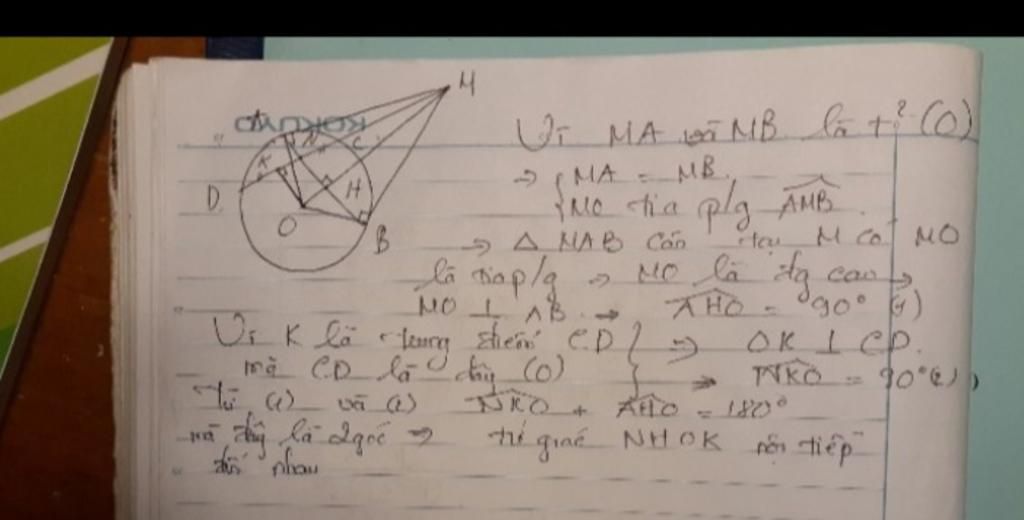 M
KOKUYO
A
N
C
K
D
H
O
B
Vì MA và MB là t² (O)
=> { MA = MB.
MO tia p/g AMB.
=> △ MAB cân tại M có MO
là tia p/g => MO là đg cao →
MO ⊥ AB. → AHO = 90° (1)
Vì K là trung điểm CD } => OK ⊥ CD.
mà CD là dây (O) → NKO = 90° (2)
Từ (1) và (2) NKO + AHO = 180°
mà đây là 2 góc => tứ giác NHOK nội tiếp
đối nhau